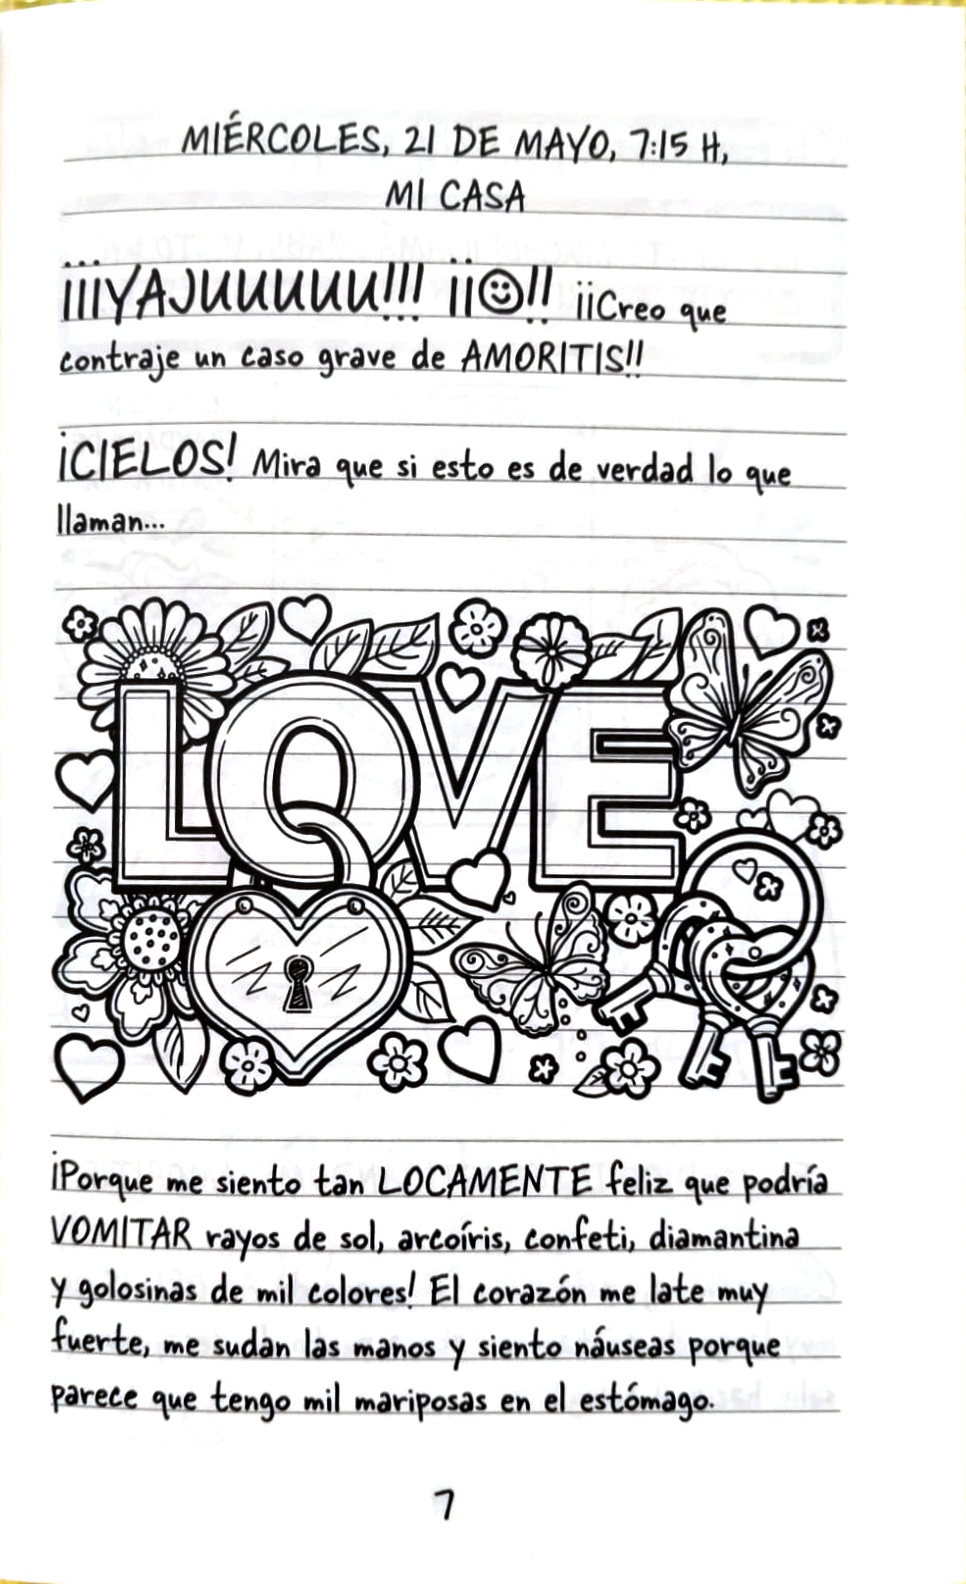 MIÉRCOLES, 21 DE MAYO, 7:15 H,
MI CASA
¡¡¡YAJUUUUUU!!! ¡¡☺!! ¡¡Creo que
contraje un caso grave de AMORITIS!!
¡CIELOS! Mira que si esto es de verdad lo que
llaman...
LOVE
¡Porque me siento tan LOCAMENTE feliz que podría
VOMITAR rayos de sol, arcoíris, confeti, diamantina
y golosinas de mil colores! El corazón me late muy
fuerte, me sudan las manos y siento náuseas porque
parece que tengo mil mariposas en el estómago.
7